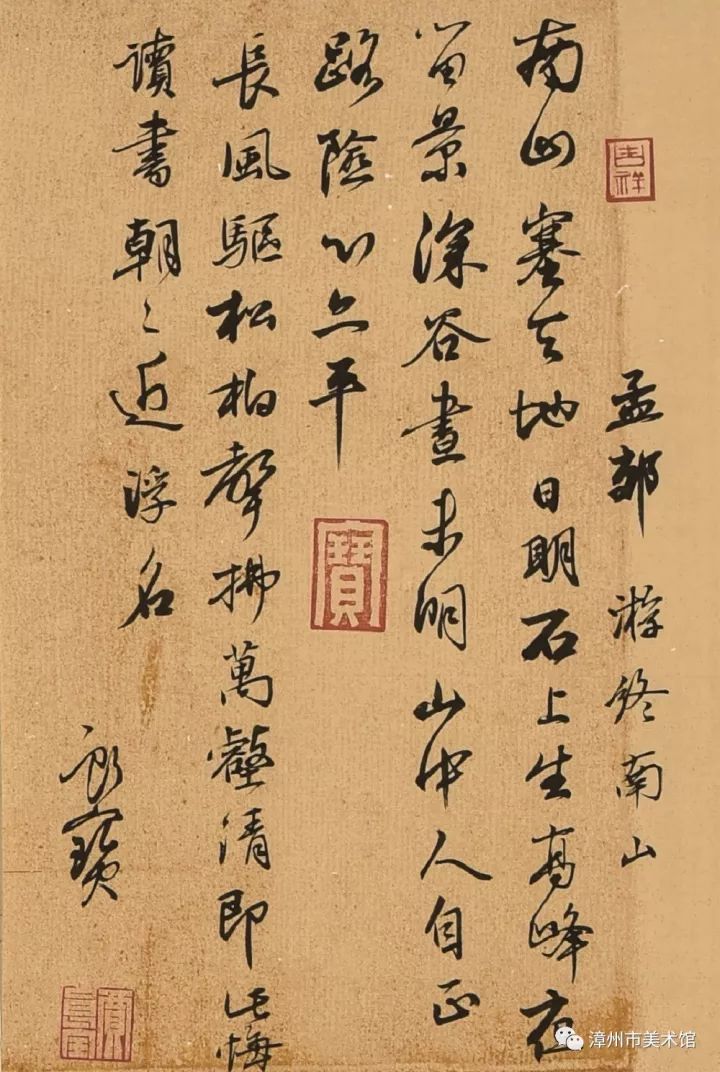 吉祥
孟郊 游終南山
南山塞天地日明石上生高峰夜
畱景深谷晝未明山中人自正
路險心亦平
寶
長風驅松柏聲拂萬壑清即此悔
讀書朝〻近浮名
寶
漳州市美术馆